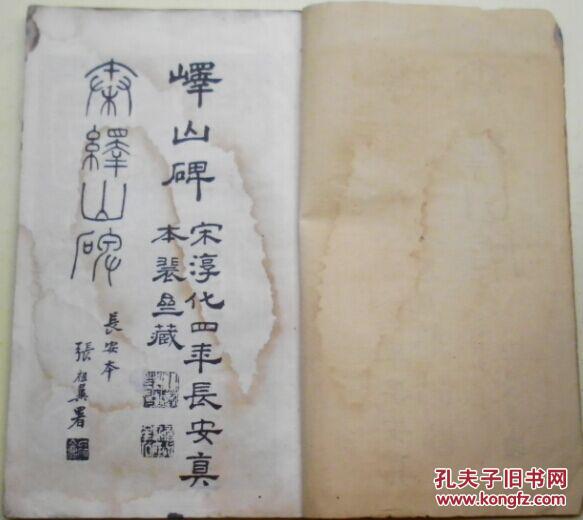 嶧山碑
宋淳化四年長安真
本裴藏
秦繹山碑
長安本
張祖翼署
孔夫子旧书网
www.kongfz.com